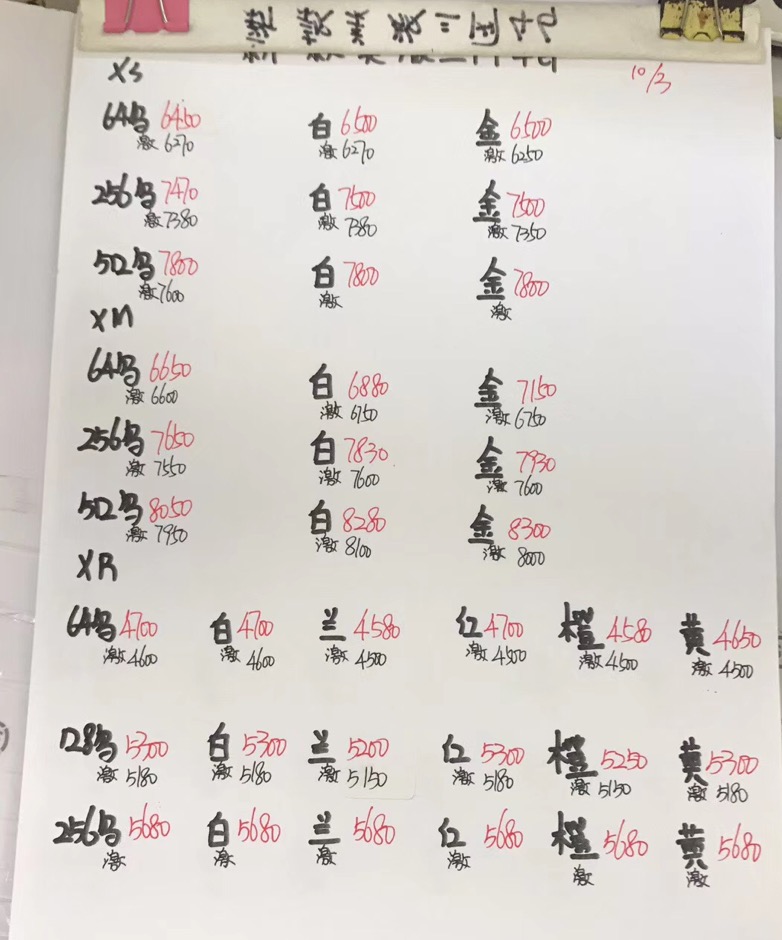 XS
10/3
64乌 6450 白 6500 金 6500
激 6270 激 6270 激 6250
256乌 7470 白 7500 金 7500
激 7380 激 7380 激 7350
512乌 7800 白 7800 金 7800
激 7600 激 激
XM
64乌 6650 白 6880 金 7150
激 6600 激 6750 激 6750
256乌 7650 白 7830 金 7930
激 7550 激 7600 激 7600
512乌 8050 白 8280 金 8300
激 7950 激 8100 激 8000
XR
64乌 4700 白 4700 兰 4580 红 4700 橙 4580 黄 4650
激 4600 激 4600 激 4500 激 4500 激 4500 激 4500
128乌 5300 白 5300 兰 5200 红 5300 橙 5250 黄 5300
激 5180 激 5180 激 5150 激 5180 激 5150 激 5180
256乌 5680 白 5680 兰 5680 红 5680 橙 5680 黄 5680
激 激 激 激 激 激